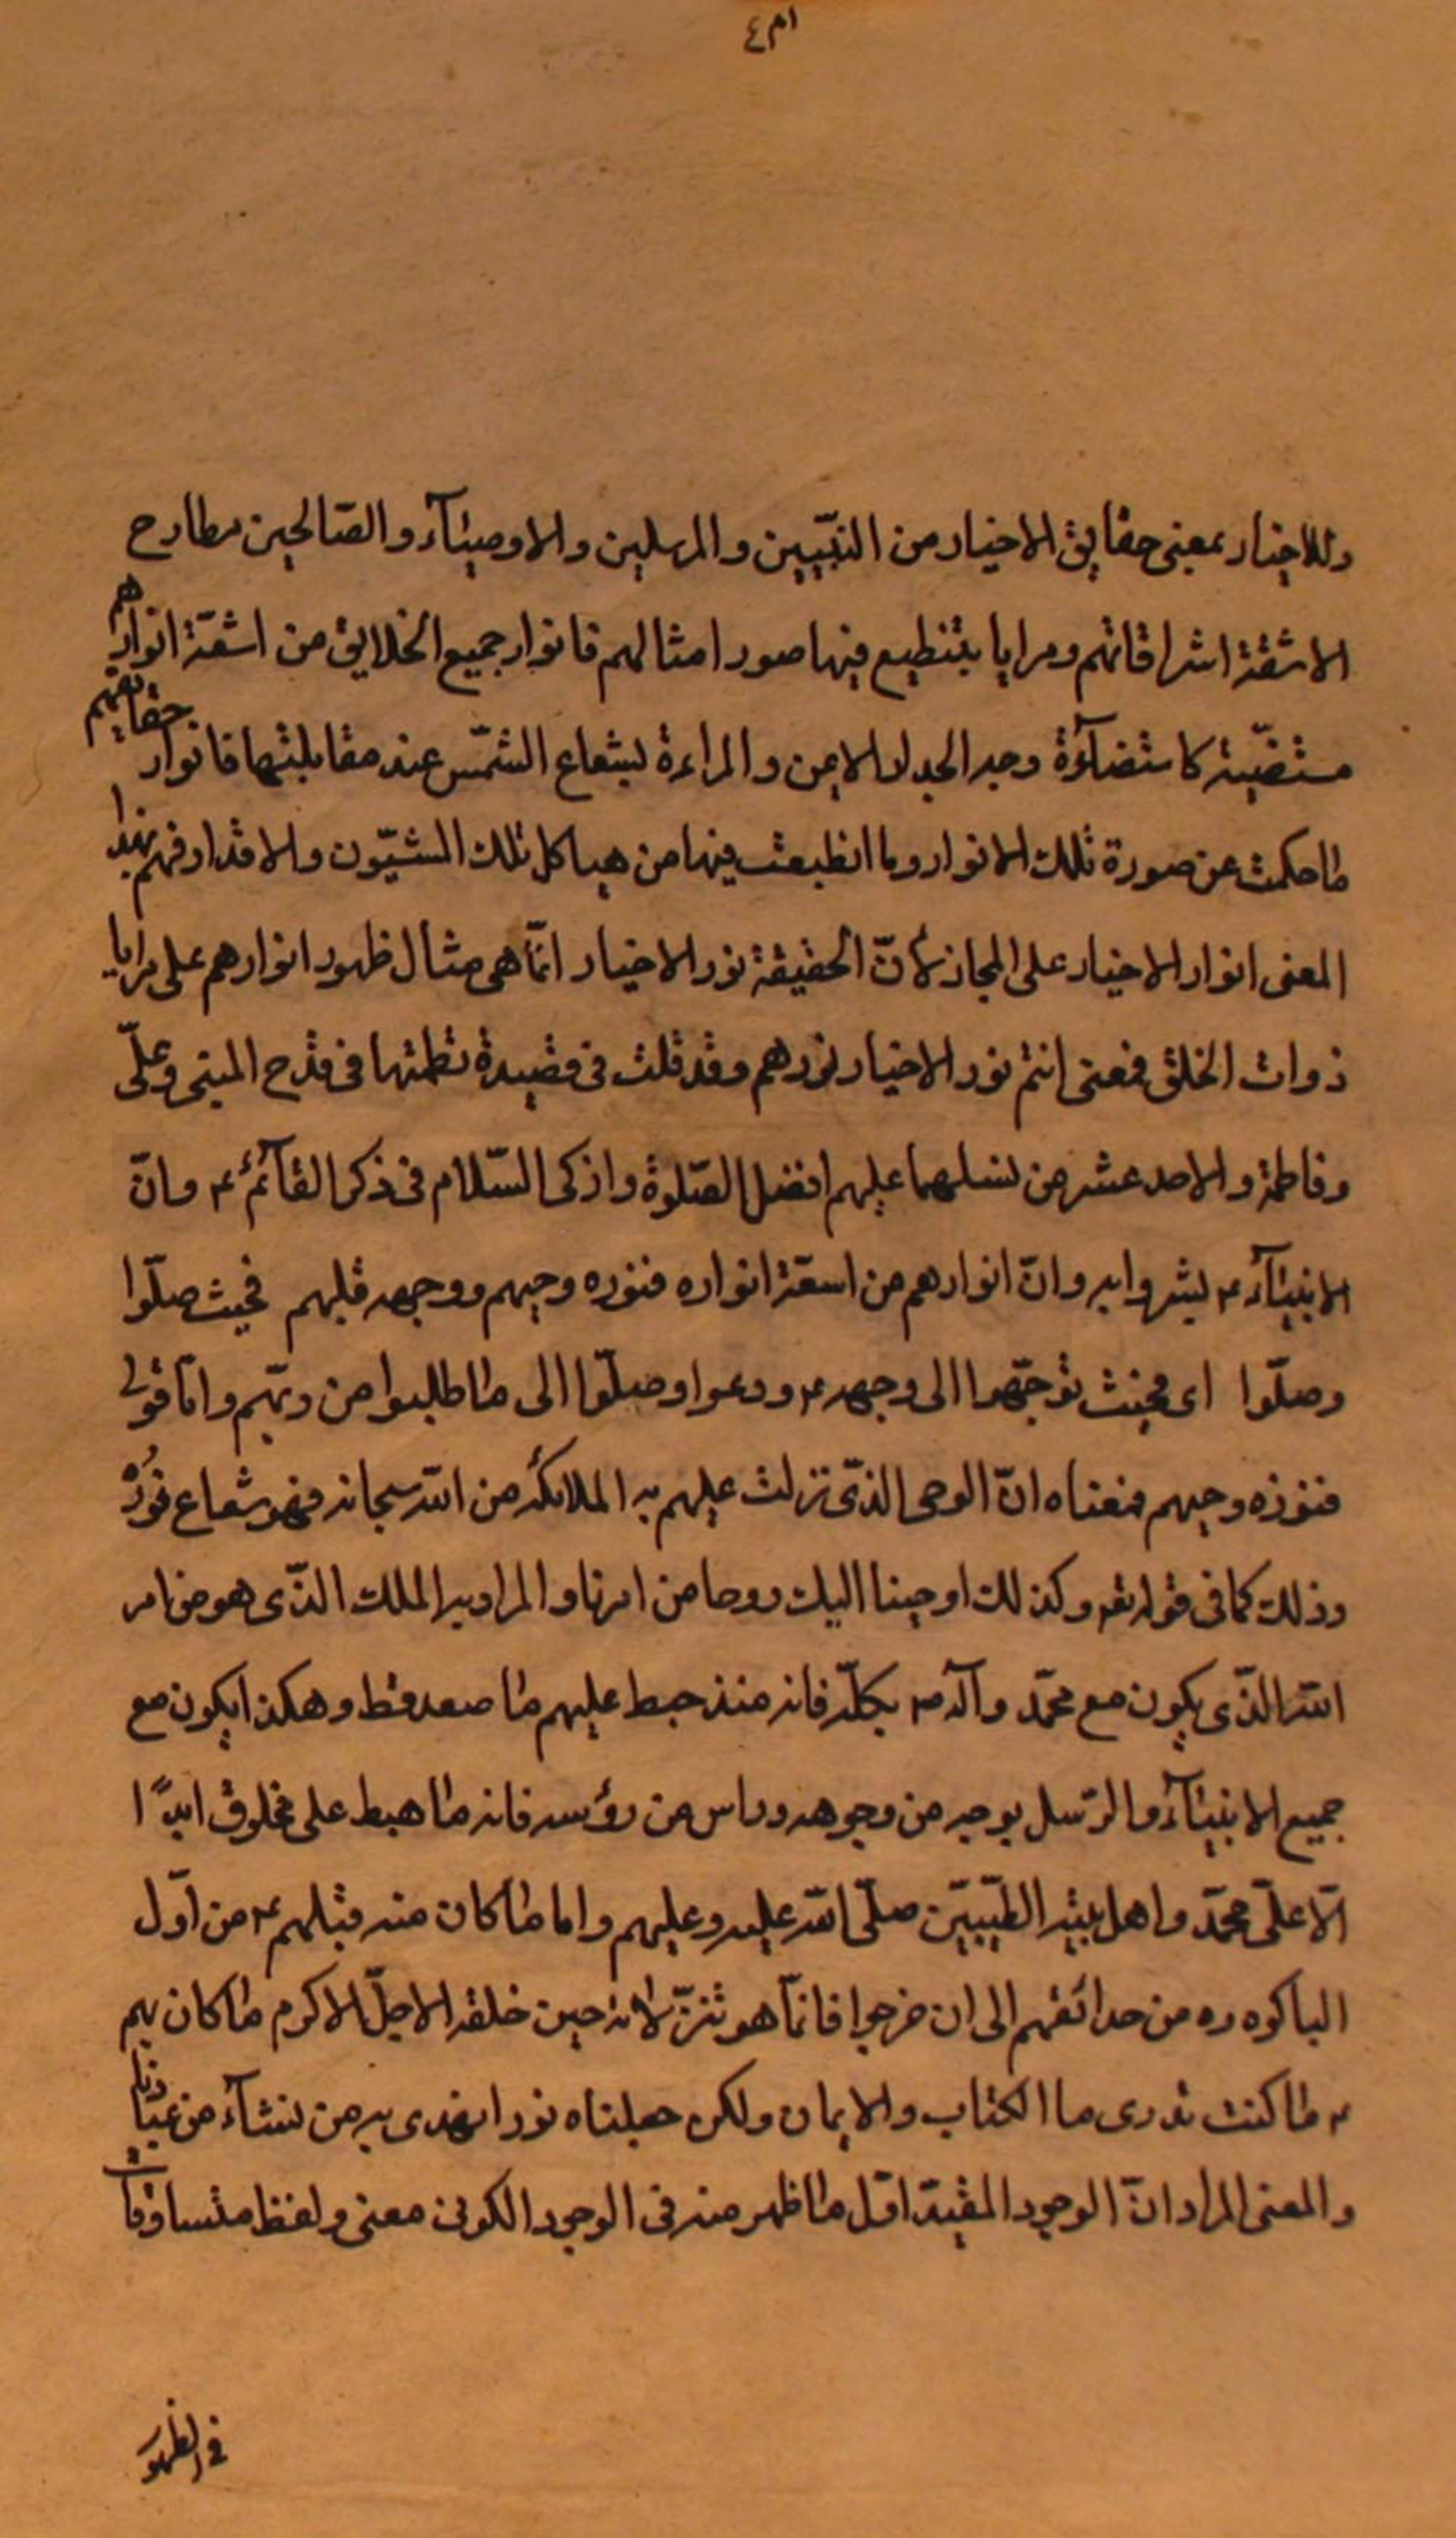 ٤٨١
وللاخيار بمعنى حقايق الاخيار من النبيين والمرسلين والاوصيآء والصّالحين مطارح
الاشعّة اشراقاتهم ومرايا ينطبع فيها صور امثالهم فانوار جميع الخلايق من اشعّة انوارهم
مستضيئة كاستضآءة وجه الجدار والارض والمراءة بشعاع الشّمس عند مقابلتها فانوار حقايقهم
ما حكت عن صورة تلك الانوار وما انطبعت فيها من هياكل تلك الشئون والاقدار فهم بهذا
المعنى انوار الاخيار على المجاز لانّ الحقيقة نور الاخيار انّما هى مثال ظهور انوارهم على مرايا
ذوات الخلق فمعنى انتم نور الاخيار نورهم وقد قلت فى قصيدة نظمتها فى مدح النبى وعلّى
وفاطمة والاحد عشر من نسلهما عليهم افضل الصّلوة وازكى السّلام فى ذكر القآئم ع وانّ
الانبيآء ع بشروا به وانّ انوارهم من اشعّة انواره فنوره وحيهم ووجهه قبلهم فحيث صلّوا
وصلّوا اى فحيث توجّهوا الى وجهه ع ودعوا وصلّوا الى ما طلبوا من ربّهم وامّا قولى
فنوره وحيهم فمعناه انّ الوحى الذّى نزلت عليهم به الملائكة من اللّه سبحانه فهو شعاع نوره
وذلك كما فى قوله تعه وكذلك اوحينا اليك روحا من امرنا والمراد به الملك الذّى هو من امر
اللّه الذّى يكون مع محمّد وآله ص بكلّه فانه منذ هبط عليهم ما صعد قط وهكذا يكون مع
جميع الانبيآء والرّسل بوجه من وجوهه وراس من رؤسه فانه ما هبط على مخلوق ابدًا
الّا علّى محمّد واهل بيته الطّيّبيّن صلّى اللّه عليه وعليهم واما ما كان منه قبلهم ع من اوّل
الباكوره من حدائقهم الى ان خرجوا فانّما هو تنزّل لانه حين خلقه الاجلّ الاكرم ما كان بهم
ع ما كنت تدرى ما الكتاب والايمان ولكن جعلناه نورا نهدى به من نشآء من عبادنا
والمعنى المراد انّ الوجود المقيّد اوّل ما ظهر منه فى الوجود الكونى معنى ولفظ متساوقان
فى الظهور